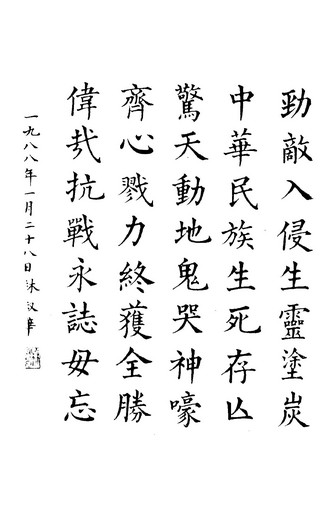 勁敵入侵生靈塗炭
中華民族生死存亾
驚天動地鬼哭神嚎
齊心戮力終獲全勝
偉哉抗戰永誌毋忘
一九八八年一月二十八日